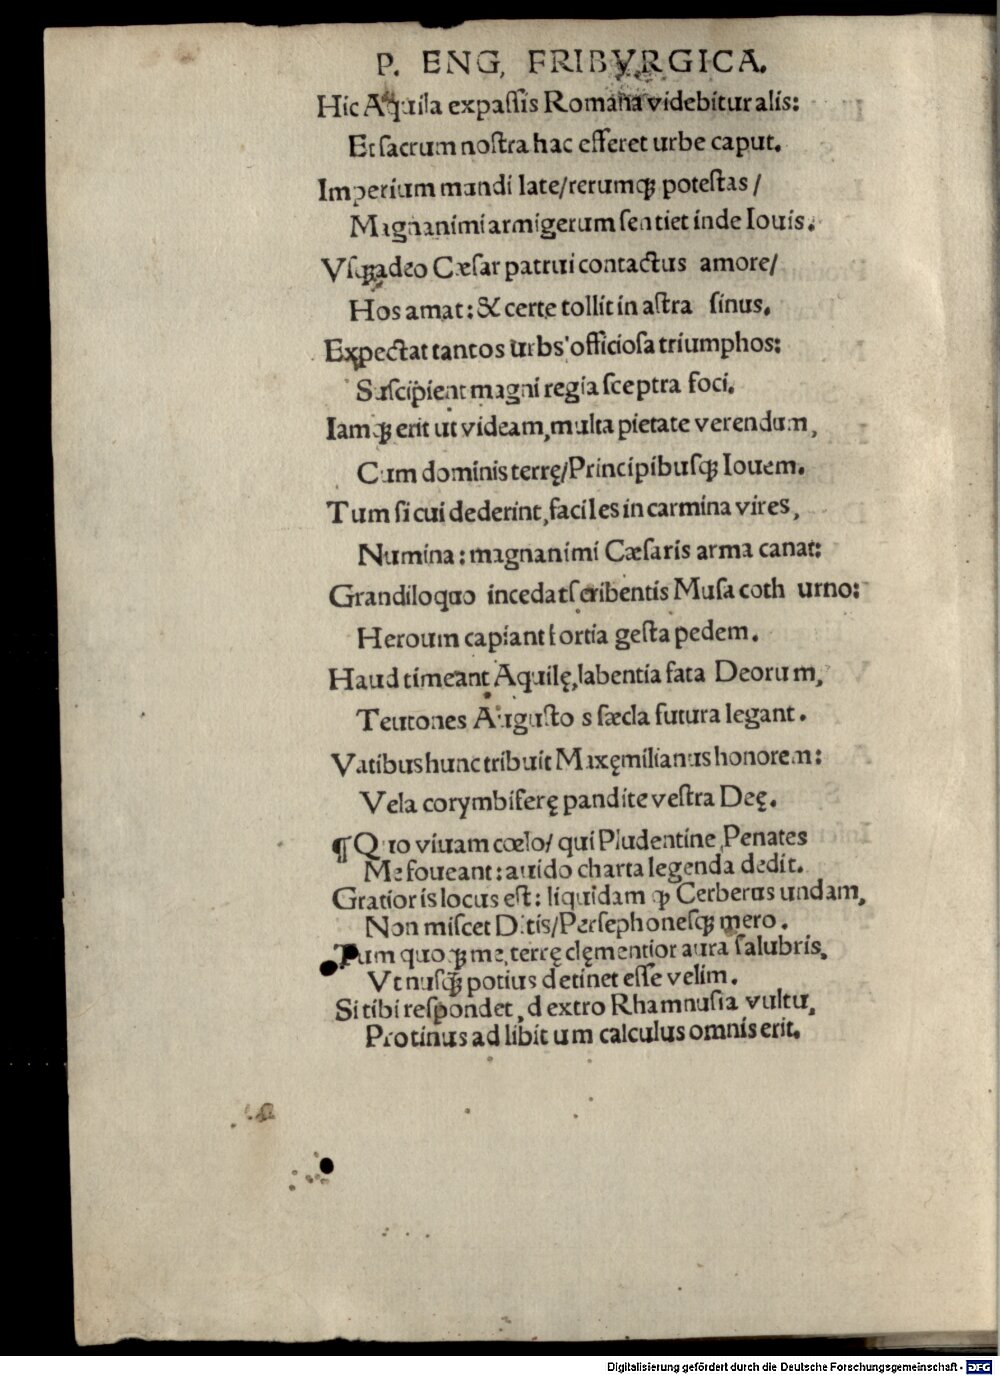 P. ENG, FRIBVRGICA.
Hic Aquila expassis Romana videbitur alis:
Et sacrum nostra hac efferet urbe caput.
Imperium mundi late/rerumqꝫ potestas/
Magnanimi armigerum sentiet inde Iouis.
Vsqꝫadeo Cæsar patrui contactus amore/
Hos amat: & certe tollit in astra sinus.
Expectat tantos urbs officiosa triumphos:
Suscipient magni regia sceptra foci.
Iamqꝫ erit ut videam, multa pietate verendum,
Cum dominis terrę/Principibusqꝫ Iouem.
Tum si cui dederint, faciles in carmina vires,
Numina: magnanimi Cæsaris arma canat:
Grandiloquo incedat scribentis Musa cothurno:
Heroum capiant fortia gesta pedem.
Haud timeant Aquilę, labentia fata Deorum,
Teutones Augustos sæcla futura legant.
Vatibus hunc tribuit Maxęmilianus honorem:
Vela corymbiferę pandite vestra Deę.
¶ Quo viuam cœlo/ qui Pludentine Penates
Me foueant: auido charta legenda dedit.
Gratior is locus est: liquidam ꝙ Cerberus undam,
Non miscet Ditis/Persephonesqꝫ mero.
Tum quoqꝫ me, terrę clęmentior aura salubris,
Vt nusqꝫ̃ potius detinet esse velim.
Si tibi respondet, dextro Rhamnusia vultu,
Protinus ad libitum calculus omnis erit.
Digitalisierung gefördert durch die Deutsche Forschungsgemeinschaft - DFG